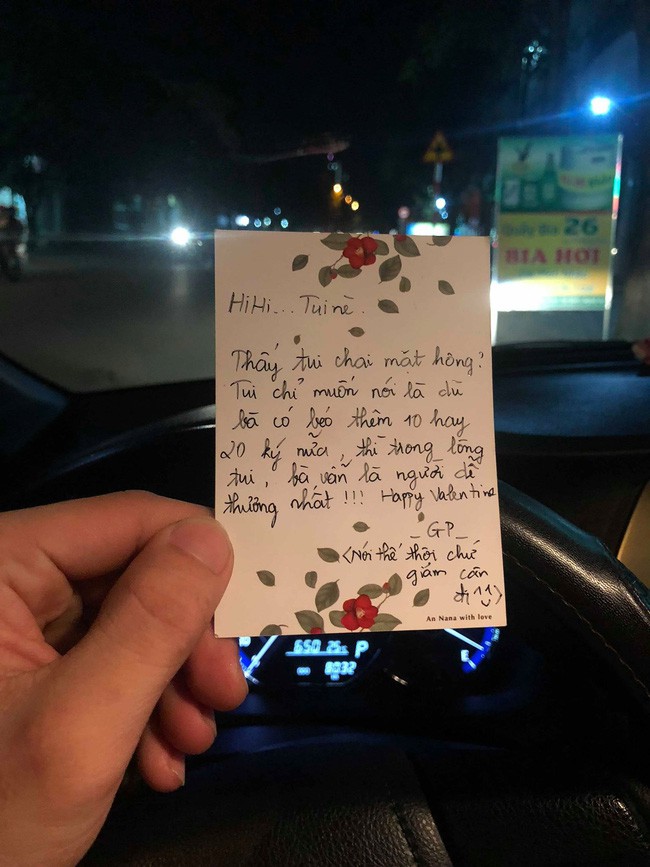 Quầy Bia 26
BIA HƠI
HiHi... Tui nè.
Thấy tui chai mặt hông?
Tui chỉ muốn nói là dù
bà có béo thêm 10 hay
20 ký nữa, thì trong lòng
tui, bà vẫn là người dễ
thương nhất!!! Happy Valentine
_GP_
<Nói thế thôi chứ
giảm cân
đi ^^>
An Nana with love
650 25
P
E
8032